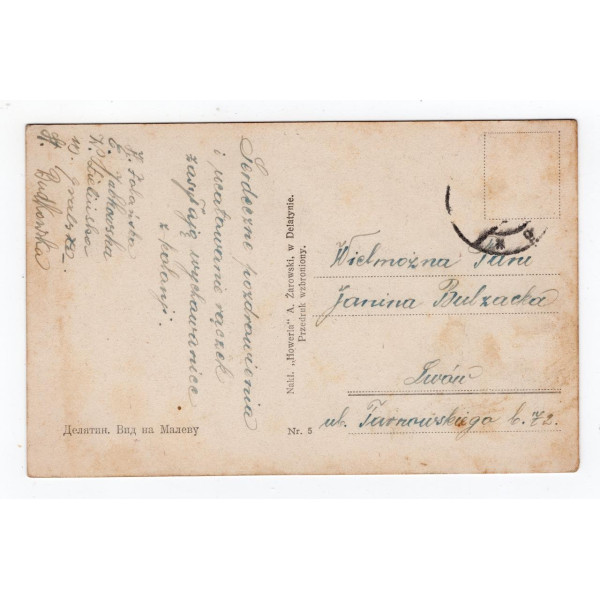 Serdeczne pozdrowienia
i ucałowanie rączek
zasyłają wychowanice
z kolonji.
Jatkowska
Zielińska
W.
Budkowska
Делятин. Вид на Малеву
Nr. 5
Nakł. „Howeria" A. Żarowski, w Delatynie.
Przedruk wzbroniony.
Wielmożna Pani
Janina Bulzacka
Lwów
ul. Turnowskiego l. 72.